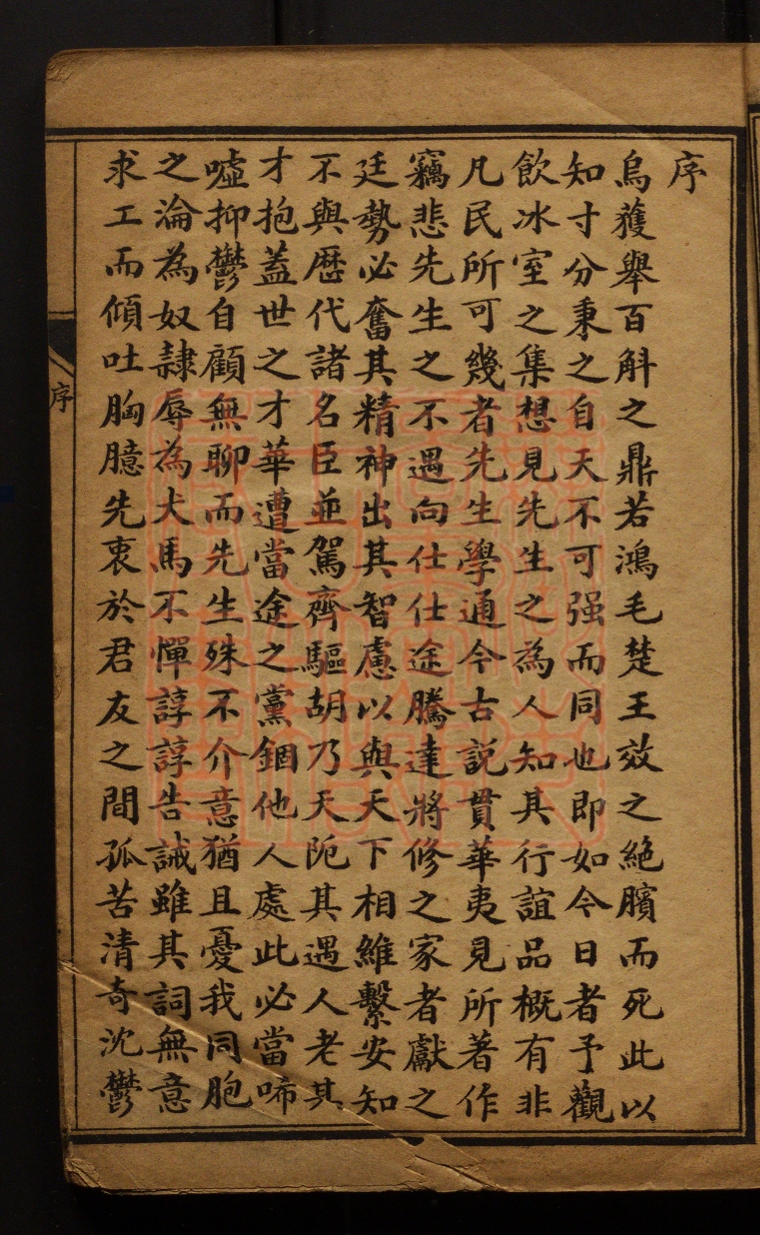 序
烏薅舉百斛之鼎若鴻毛楚王效之絕臏而死此以
知寸分秉之自天不可强而同也即如今日者予觀
飲冰室之集想見先生之為人知其行誼品概有非
凡民所可幾者先生學通今古説貫華夷見所著作
竊悲先生之不遇向仕仕途騰達將修之家者獻之
廷勢必奮其精神出其智慮以與天下相維繫安知
不與歷代諸名臣並駕齊驅胡乃天阨其遇人老其
才抱蓋世之才華遭當途之黨錮他人處此必當啼
噓抑鬱自顧無聊而先生殊不介意猶且憂我同胞
之淪為奴隸辱為犬馬不憚諄諄告誡雖其詞無意
求工而傾吐胸臆先衷於君友之間孤苦清奇沈鬱
序